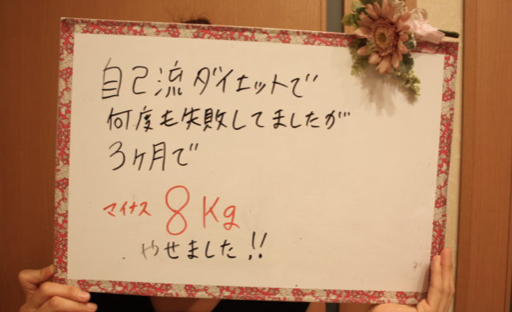 自己流ダイエットで
何度も失敗してましたが
3ヶ月で
マイナス 8Kg
やせました!!